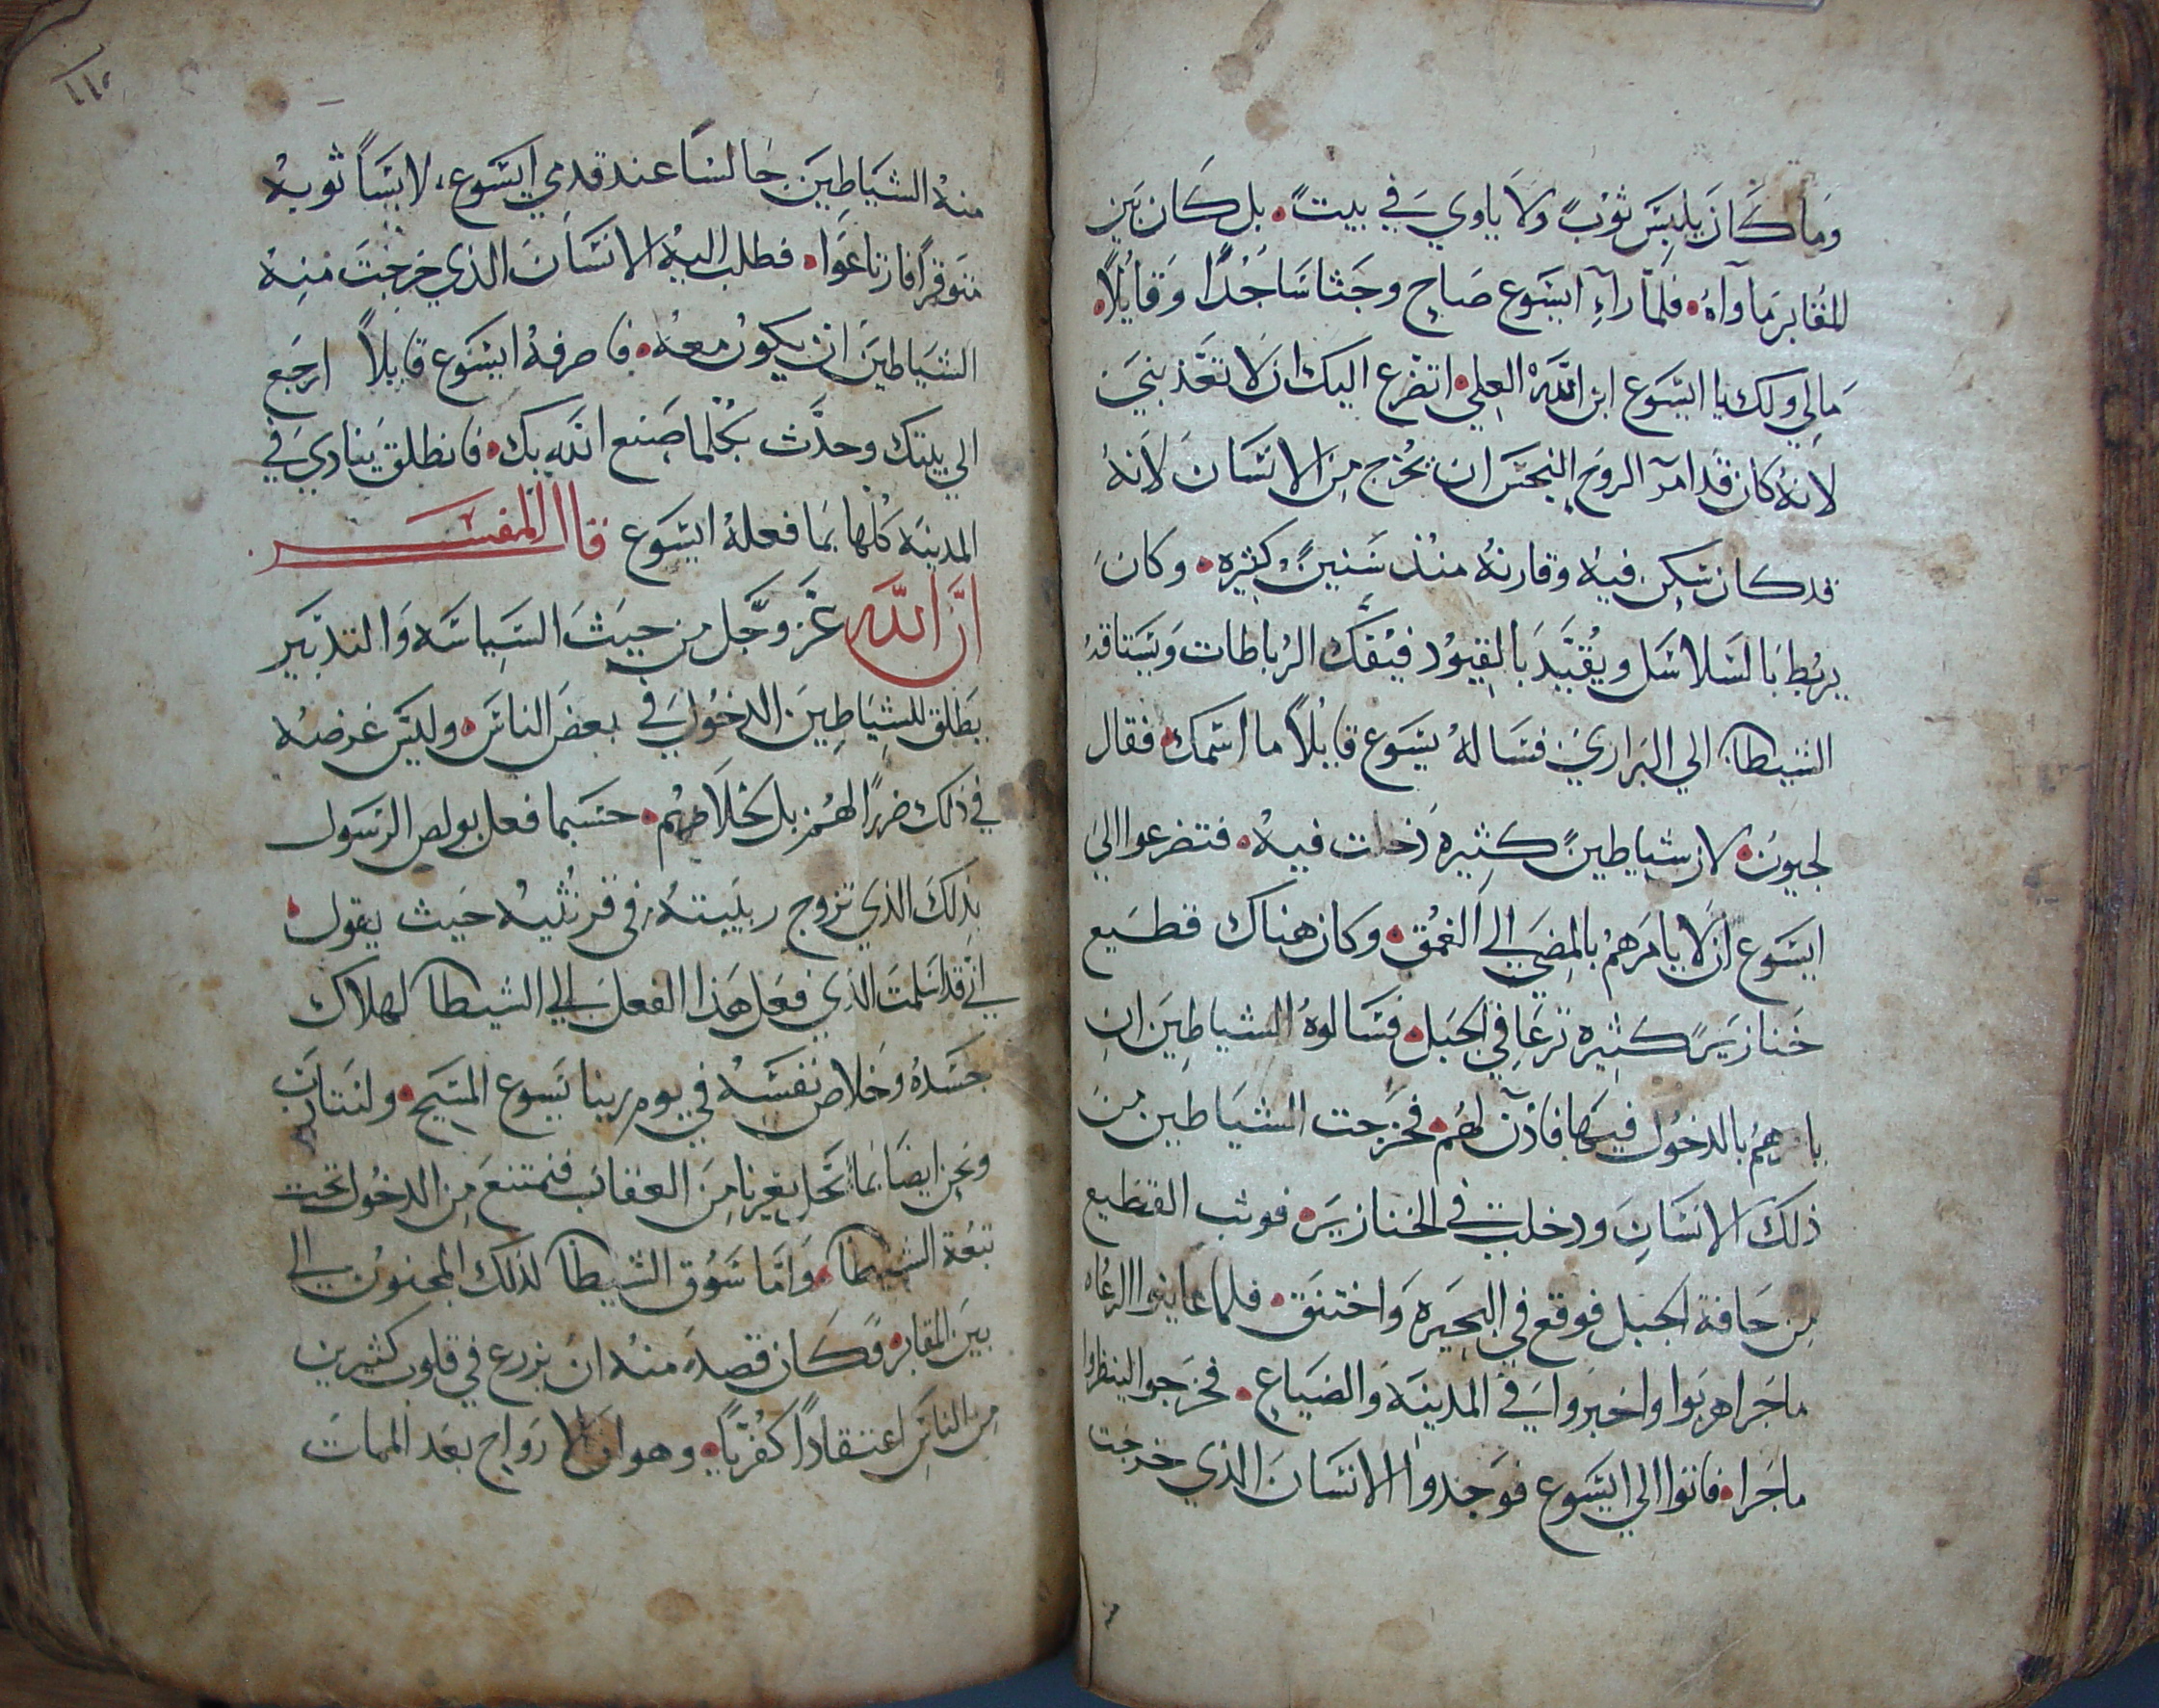 وما كان يلبس ثوب ولا ياوي في بيت. بل كان بين
المقابر ماواه. فلما راء ايسوع صاح وجثا ساجدًا وقايلاً.
مالي ولك يا ايسوع ابن الله العلي. اتضرع اليك ان لا تعذبني
لانه كان قد امر الروح النجس ان تخرج من الانسان لانه
قد كان سكن فيه وقارنه منذ سنين كثيره. وكان
يربط بالسلاسل ويقيد بالقيود فيفك الرباطات ويستاقه
الشيطان الي البراري فساله يسوع قايلاً ما اسمك. فقال
لجيون. لان شياطين كثيره دخلت فيه. فتضرعوا الي
ايسوع ان لا يامرهم بالمضي الي الغمق. وكان هناك قطيع
خنازير كثيره ترعا في الجبل. فسالوه الشياطين ان
يامرهم بالدخول فيها فأذن لهم. فخرجت الشياطين من
ذلك الانسان ودخلت في الخنازير. فوثب القطيع
من حافة الجبل فوقع في البحيره واختنق. فلما عاينوا الرعاه
ماجرا هربوا واخبروا في المدينه والضياع. فخرجوا لينظروا
ماجرا. فاتوا الي ايسوع فوجدوا الانسان الذي خرجت
١١٥
منه الشياطين جالسًا عند قدمي ايسوع، لابسًا ثوبه
متوقرًا فارتاعوا. فطلب اليه الانسان الذي خرجت منه
الشياطين ان يكون معه. فاصرفه ايسوع قايلاً ارجع
الي بيتك وحدث بكلما صنع الله بك. فانطلق ينادي في
المدينه كلها بما فعله ايسوع قال المفسر
ان الله عز وجل من حيث السياسه والتدبير
يطلق للشياطين الدخول في بعض الناس. وليس غرضه
في ذلك ضررًا لهم بل لخلاصهم. حسبما فعل بولص الرسول
بذلك الذي تزوج ربيبته في قرنثيه حيث يقول.
اني قد اسلمت الذي فعل هذا الفعل الي الشيطان لهلاك
جسده وخلاص نفسه في يوم ربنا يسوع المسيح. ولنتادب
ونحن ايضا بما يحل بغيرنا من العقاب فنمتنع من الدخول تحت
تبعة الشيطان. واما سوق الشيطان لذلك المجنون الي
بين المقابر فكان قصده منه ان يزرع في قلوب كثيرين
من الناس اعتقادًا كفريًا. وهو ان الارواح بعد الممات